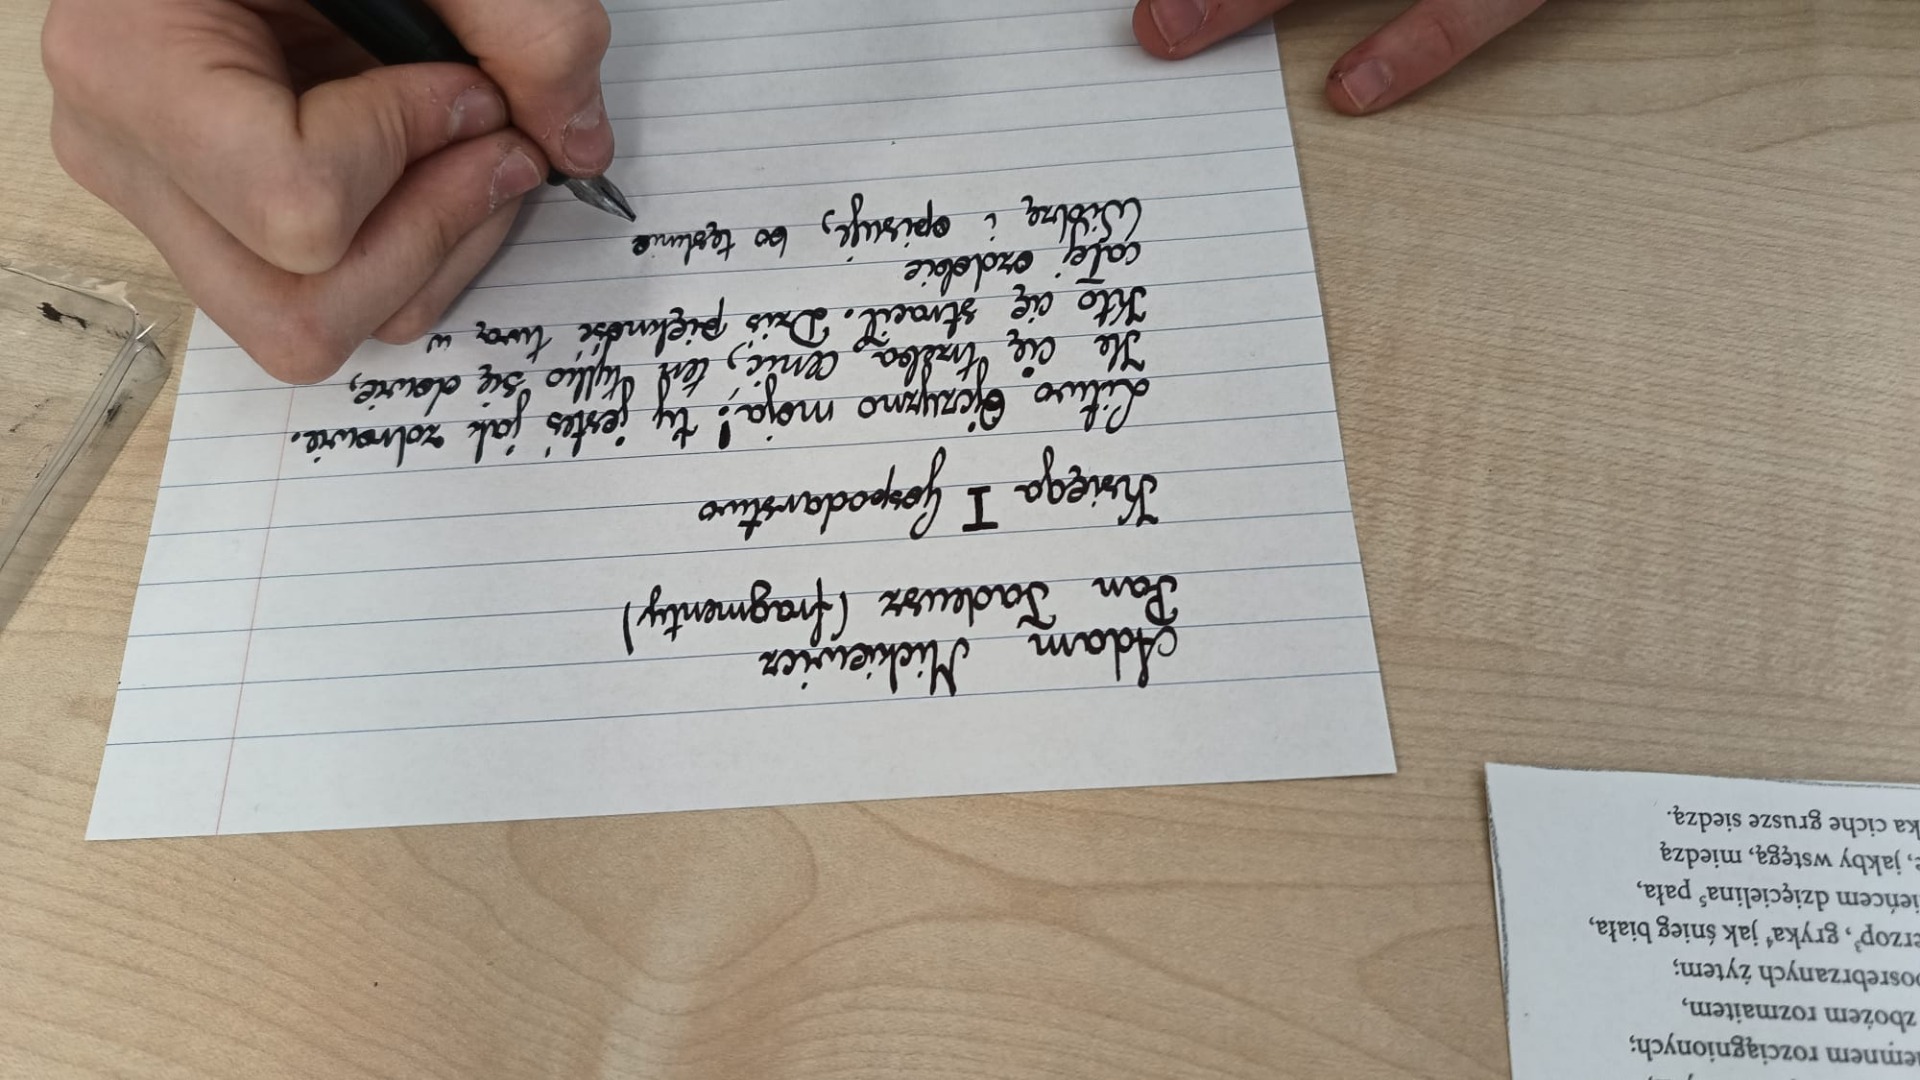 Adam Mickiewicz
Pan Tadeusz (fragmenty)
Księga I Gospodarstwo
Litwo Ojczyzno moja! ty jesteś jak zdrowie.
Ile cię trzeba cenić, ten tylko się dowie,
Kto cię stracił. Dziś piękność twą w
całej ozdobie
Widzę i opisuję, bo tęsknie
iemnem rozciągnionych;
zbożem rozmaitem,
posrebrzanych żytem;
erzop³, gryka⁴ jak śnieg biała,
ieńcem dzięcielina⁵ pała,
e, jakby wstęgą, miedzą
ka ciche grusze siedzą.